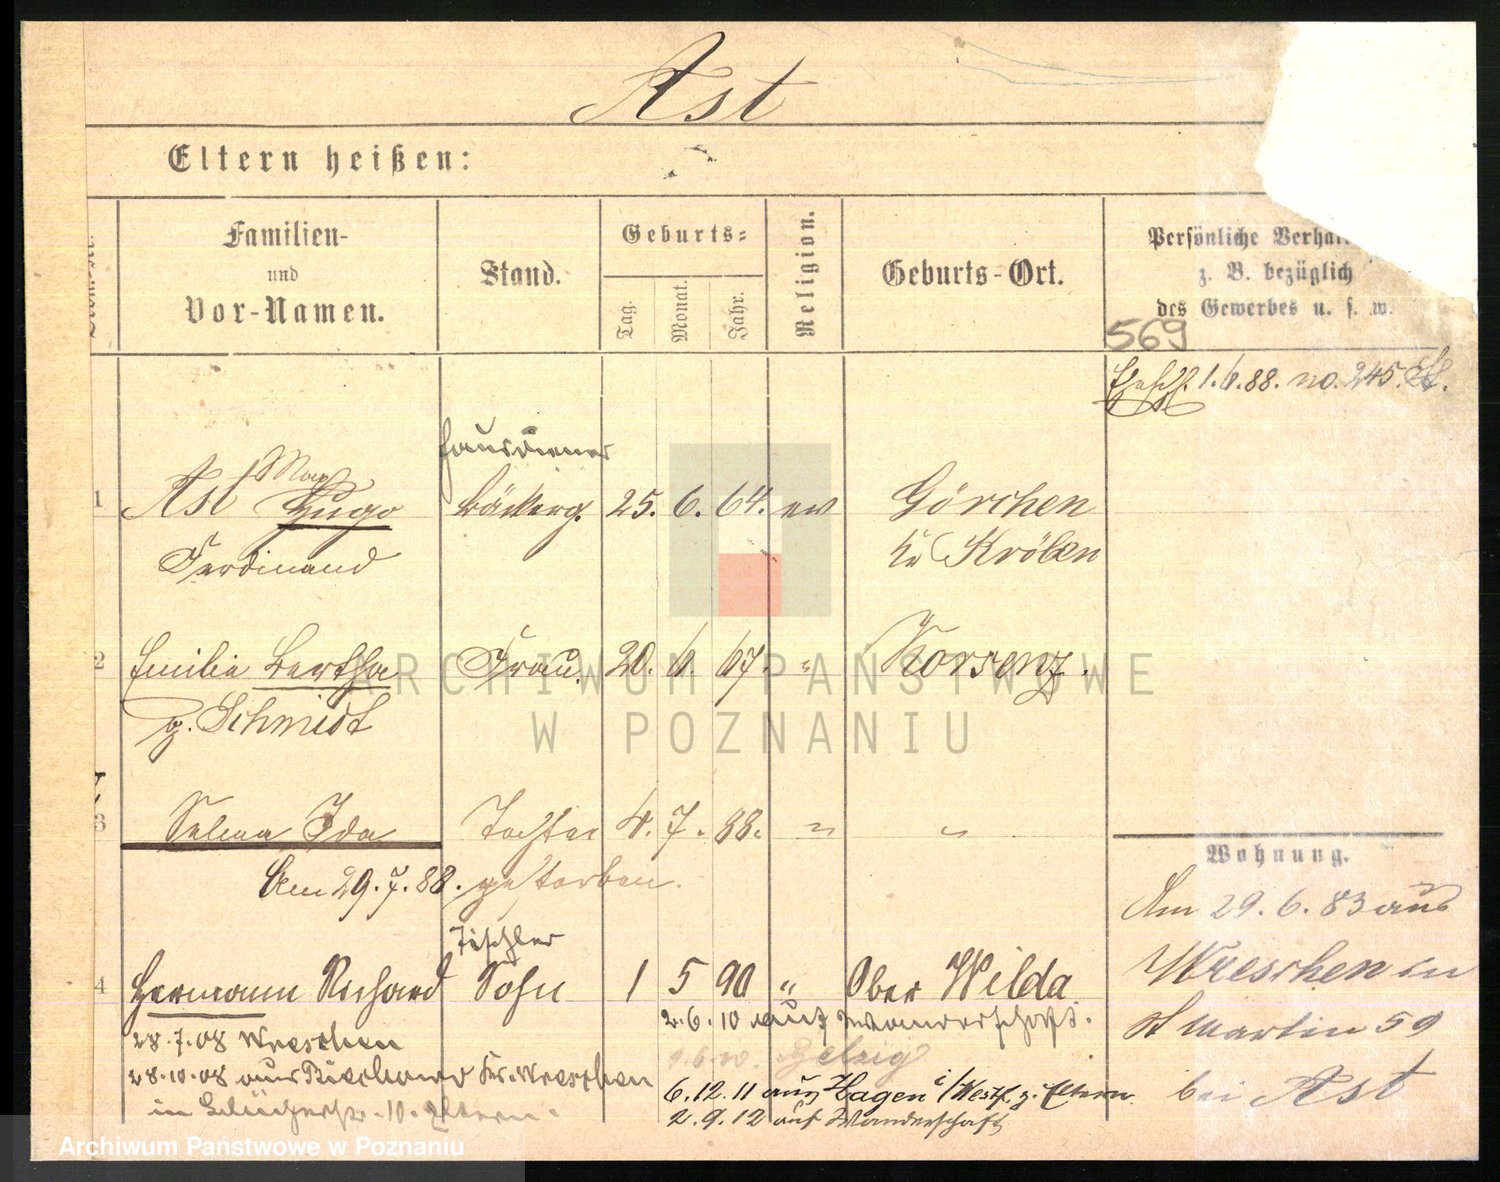 Ast
Eltern heißen:
Familien-
und
Vor-Namen.
Stand.
Geburts-
Tag.
Monat.
Jahr.
Religion.
Geburts-Ort.
Persönliche Verhal
z. B. bezüglich
des Gewerbes u. s. w.
569
1.6.88. no. 245. St.
Hausdiener
1 Ast Max Hugo Bäckerg. 25. 6. 64. ev Görchen
Ferdinand Kr Kröben
2 Emilie Bertha Frau 20. 6. 67. " Korsenz.
g. Schmidt
ARCHIWUM PAŃSTWOWE
W POZNANIU
3 Selma Ida Tochter 4. 7. 88. " "
Am 29.7.88. gestorben.
Wohnung.
Am 29.6.83 aus
Wreschen in
St Martin 59
bei Ast
Tischler
4 Hermann Richard Sohn 1 5 90 " Ober Wilda
2.6.10 auf Wanderschaft.
28.7.08 Wreschen
28.10.08 aus Kr. Wreschen
10. Eltern.
6.12.11 aus Hagen i/Westf. z. Eltern
2.9.12 auf Wanderschaft
Archiwum Państwowe w Poznaniu